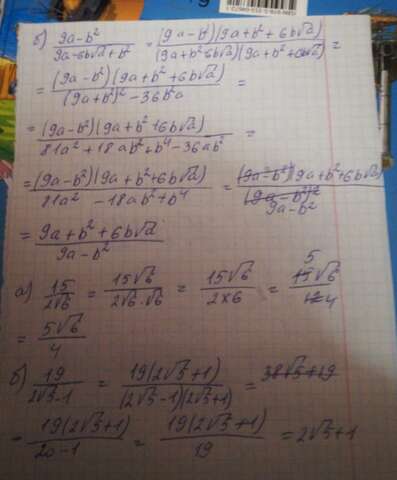 б) (9a-b²)/(9a-6b√a+b²) = ((9a-b²)(9a+b²+6b√a))/((9a+b²-6b√a)(9a+b²+6b√a)) =
= ((9a-b²)(9a+b²+6b√a))/((9a+b²)²-36b²a) =
= ((9a-b²)(9a+b²+6b√a))/(81a²+18ab²+b⁴-36ab²) =
= ((9a-b²)(9a+b²+6b√a))/(81a²-18ab²+b⁴) = ((9a-b²)(9a+b²+6b√a))/((9a-b²)²) 9a-b²
= (9a+b²+6b√a)/(9a-b²)
а) 15/(2√6) = (15√6)/(2√6·√6) = (15√6)/(2×6) = (15√6)/12 5 4
= (5√6)/4
б) 19/(2√5-1) = (19(2√5+1))/((2√5-1)(2√5+1)) = 38√5+19
= (19(2√5+1))/(20-1) = (19(2√5+1))/19 = 2√5+1